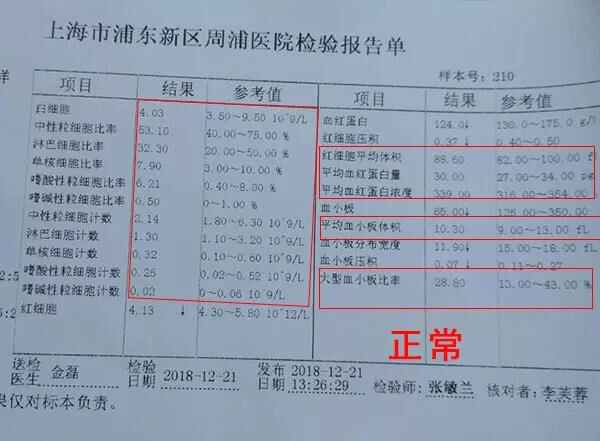 上海市浦东新区周浦医院检验报告单
样本号: 210
项目 结果 参考值
白细胞 4.03 3.50~9.50 10^9/L
中性粒细胞比率 53.10 40.00~75.00 %
淋巴细胞比率 32.30 20.00~50.00 %
单核细胞比率 7.90 3.00~10.00 %
嗜酸性粒细胞比率 6.21 0.40~8.00 %
嗜碱性粒细胞比率 0.50 0~1.00 %
中性粒细胞计数 2.14 1.80~6.30 10^9/L
淋巴细胞计数 1.30 1.10~3.20 10^9/L
单核细胞计数 0.32 0.10~0.60 10^9/L
嗜酸性粒细胞计数 0.25 0.02~0.52 10^9/L
嗜碱性粒细胞计数 0.02 0~0.06 10^9/L
红细胞 4.13 ↓ 4.30~5.80 10^12/L
项目 结果 参考值
血红蛋白 124.0↓ 130.0~175.0 g/
红细胞压积 0.37↓ 0.40~0.50
红细胞平均体积 88.60 82.00~100.00 fL
平均血红蛋白量 30.00 27.00~34.00 pg
平均血红蛋白浓度 339.00 316.00~354.00
血小板 65.00↓ 125.00~350.00
平均血小板体积 10.30 9.00~13.00 fL
血小板分布宽度 11.90↓ 15.00~18.00 fL
血小板压积 0.07↓ 0.11~0.27
大型血小板比率 28.80 13.00~43.00 %
正常
送检医生 金磊 检验日期 2018-12-21 发布日期 2018-12-21 13:26:29 检验师: 张敏兰 核对者: 李芙蓉
仅对标本负责。